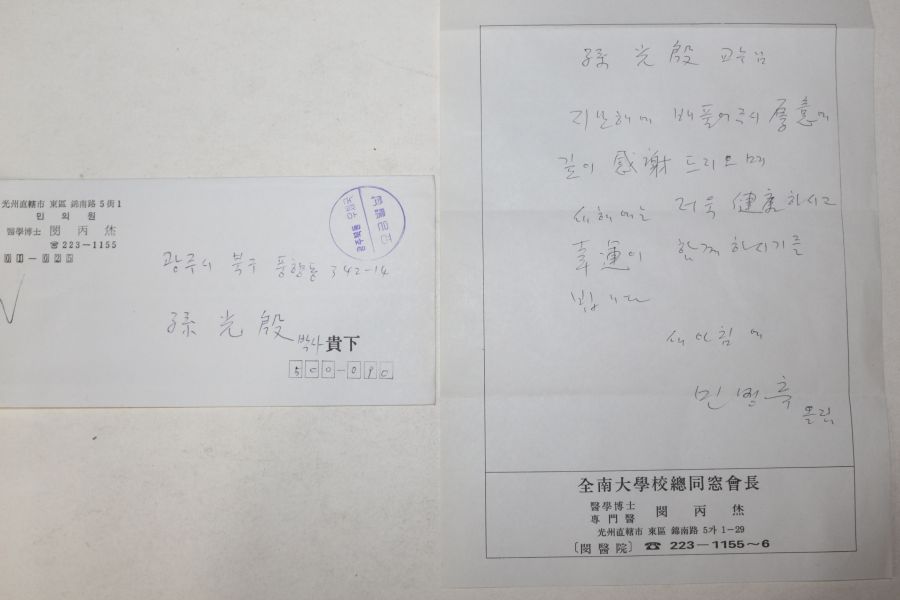 光州直轄市 東區 錦南路 5街1
민 의 원
醫學博士 閔 丙
☎ 223-1155
광주시 북구 풍향동 342-14
孫 光 殷 박사 貴下
500-090
孫 光 殷 교수님
지난해에 베풀어주신 厚意에
깊이 感謝 드리오며
새해에는 더욱 健康하시고
幸運이 함께 하시기를
빕니다
새아침에
민 병 올림
全南大學校總同窓會長
醫學博士
專門醫 閔 丙
光州直轄市 東區 錦南路 5가 1-29
〔閔醫院〕 ☎ 223-1155~6